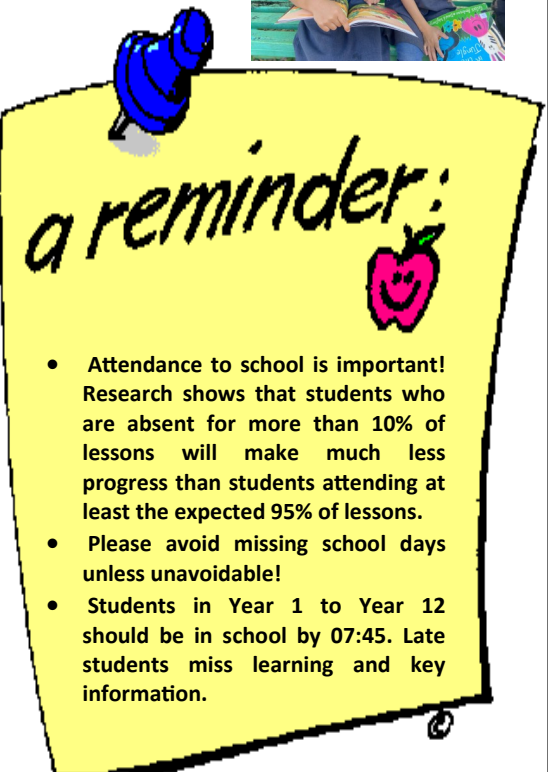 a reminder:
• Attendance to school is important!
Research shows that students who
are absent for more than 10% of
lessons will make much less
progress than students attending at
least the expected 95% of lessons.
• Please avoid missing school days
unless unavoidable!
• Students in Year 1 to Year 12
should be in school by 07:45. Late
students miss learning and key
information.
©